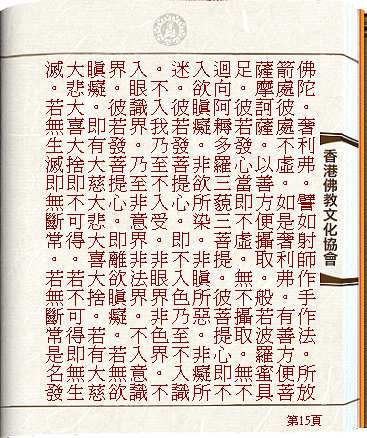 佛陀。奢利弗。譬如射師作手作法。所放
箭處彼處不虛。如是奢利弗。有善方便菩
薩摩訶薩。以善方便攝取。般若波羅蜜具
足。彼若發心當即不虛。無不攝取。無不
迴向阿耨多羅三藐三菩提。彼菩提心即不
入欲瞋癡。非欲所染。非瞋所惡。非癡所
迷。彼若發菩提心。即不入色乃至不入識
。不入我乃至不入受。非眼界非色界。不
入眼識界。乃至非意界非法界。不入意識
界。彼若發菩提心。即離欲瞋癡。若無欲
瞋癡。即有大慈大悲大喜大捨。若有大慈
大悲大喜大捨即不可得。若不可得即無生
滅。若無生滅即無斷常。若無斷常是名發
香港佛教文化協會
第15頁